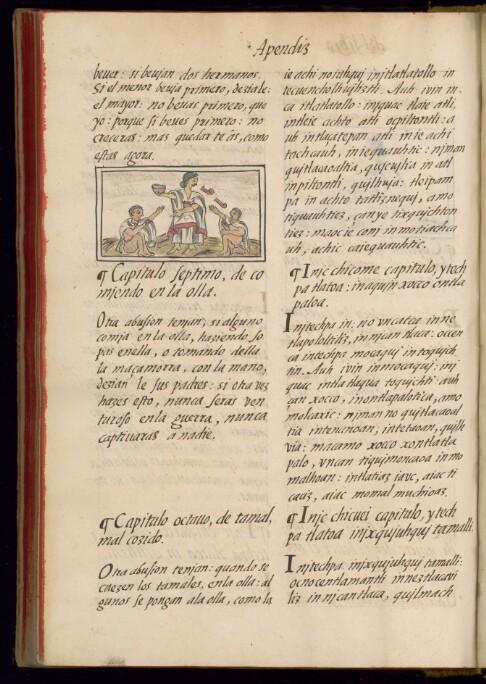 Apendiz
beuer: si beujan dos hermanos.
Si el menor beuja primero, deziale:
el mayor: no beuas primero, que
yo: porque si beues primero: no
creceras: mas quedar te as, como
estas agora.
¶ Capitulo septimo, de co
mjendo en la olla.
Otra abusion tenjan, si alguno
comja en la olla, haziendo so
pas en ella, o tomando della
la maçamorra, con la mano,
dezian le sus padres: si otra vez
hazes esto, nunca seras ven
turoso en la guerra, nunca
captivaras a nadie.
¶ Capitulo octauo, de tamal,
mal cozido.
Otra abusion tenjan: quando se
cuezen los tamales, en la olla: al
gunos se pongan a la olla, como la
ie achi noiuhquj injtlatlatollo in
Auh ivin in
ca itlatlatollo: injquac tlaie atli,
intleie achto atli ocpiltontli: a
uh intlacatepan atli in ie achi
tachcauh, in iequauhtic: njman
qujtlacaoaltia, qujcujlia in atl
inpiltontli, qujlhuja: tleipam
pa in achto tattiznequj, amo
tiquauhtiez, çan ye tixqujchton
tiez: maoc ie conj in motiachca
uh, achic caiequauhtic.
¶ Injc chicome capitulo, ytech
pa tlatoa: inaqujn xocco ontla
paloa.
Injtechpa in: no vncatca inne
tlapololtiliz, innjcan tlaca: occen
ca intechpa mocaquj intoqujch
tin. Auh ivin innocaquj: inj
quac intla itlaqua toqujchtli: auh
çan xocco, inontlapalotica, amo
molcaxic: njman no qujtlacaoal
tia intenenoan, intetaoan, qujlh
via: macamo xocco xontlatla
palo, vncan tiqujmoncaoa inmo
malhoan: intlatiaz iauc, aiac ti
caciz, aiac momal muchioaz.
¶ Injc chicuei capitulo, ytech
pa tlatoa injxqujuhquj tamalli:
Injtechpa injxqujuhquj tamalli:
ocnocentlamantli inneztlacavi
liz in njcantlaca, qujlmach